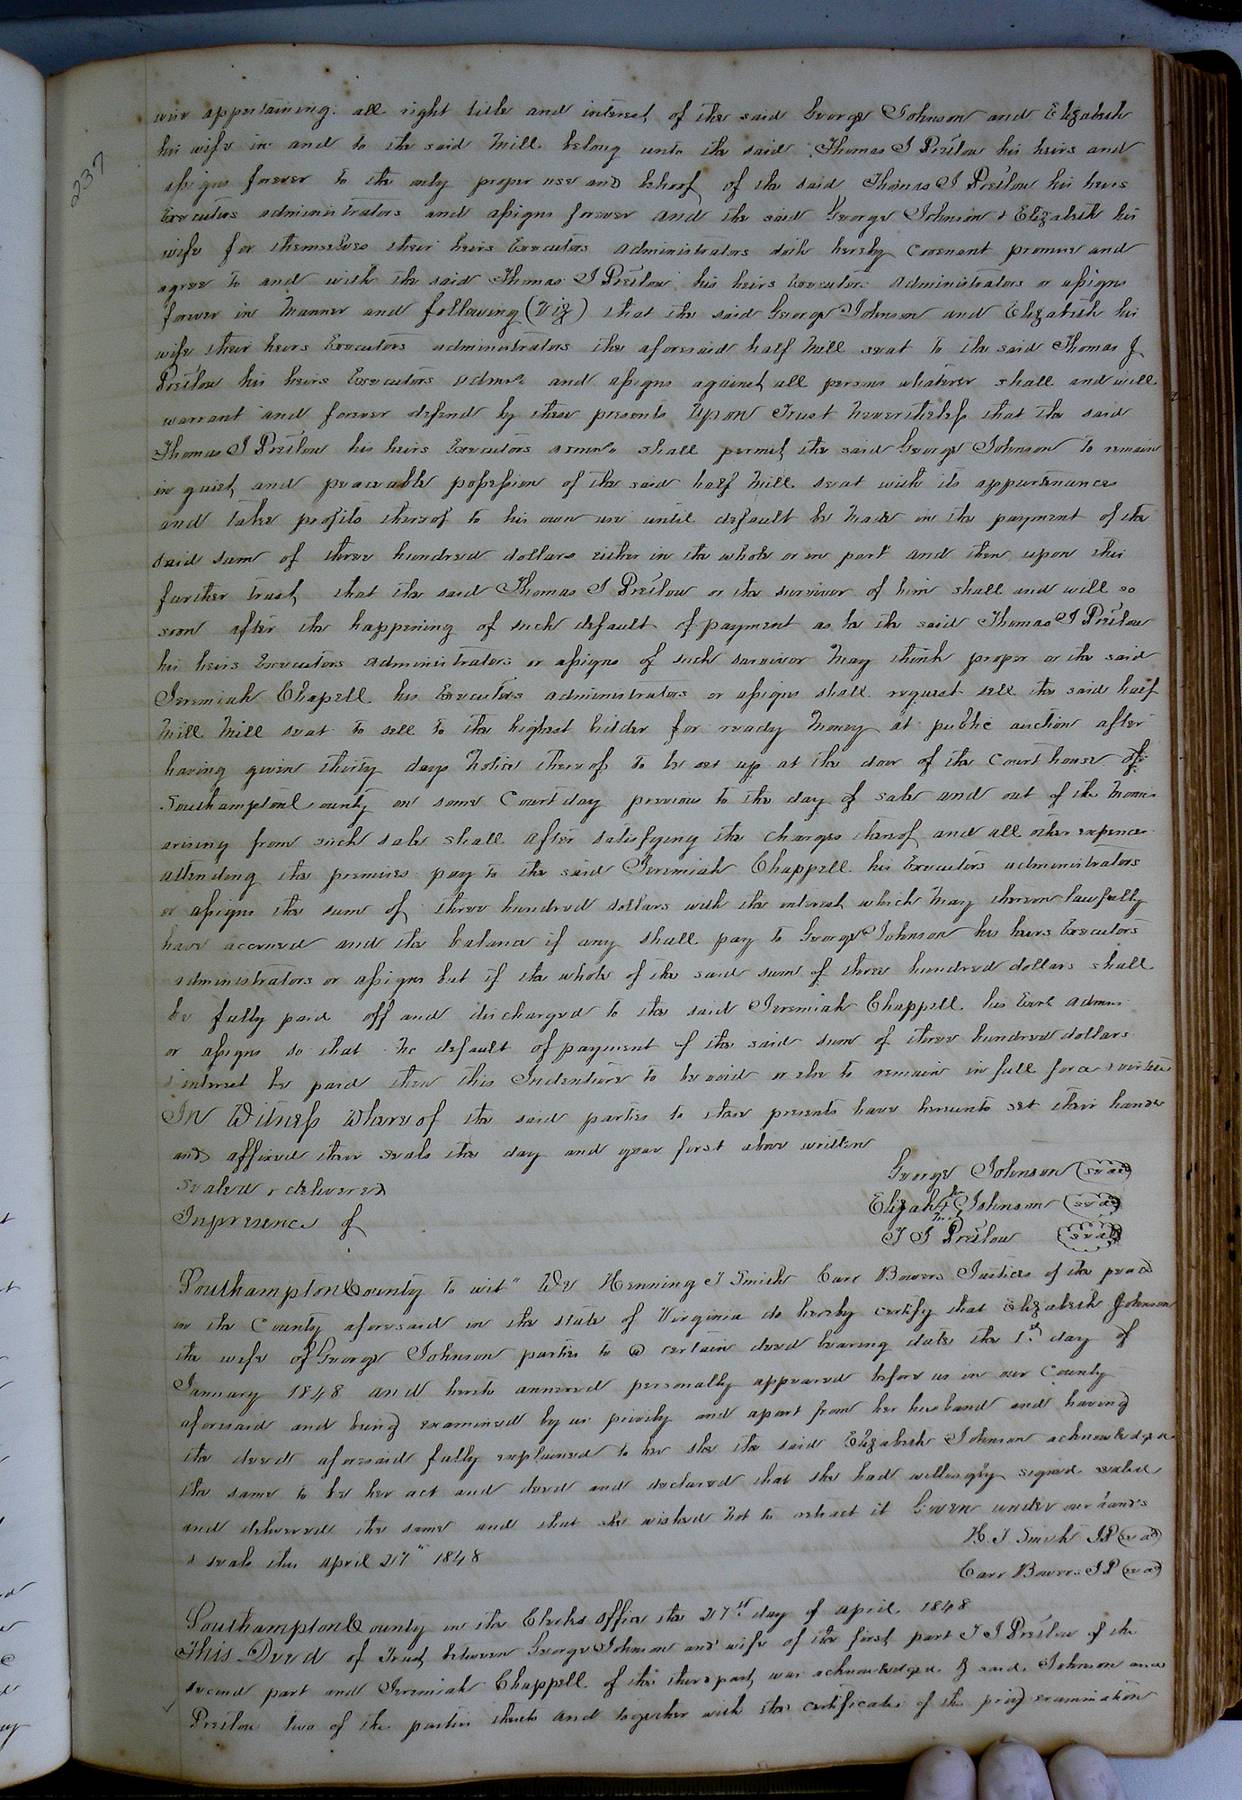 237
wise appertaining. all right title and interest of the said George Johnson and Elizabeth
his wife in and to the said Mill belong unto the said Thomas J Pretlow his heirs and
assigns forever to the only proper use and behoof of the said Thomas J Pretlow his heirs
Executors administrators and assigns forever and the said George Johnson & Elizabeth his
wife for themselves their heirs Executors administrators doth hereby covenant promise and
agree to and with the said Thomas J Pretlow his heirs Executors administrators or assigns
forever in manner and following (Viz) that the said George Johnson and Elizabeth his
wife their heirs Executors administrators the aforesaid half Mill seat to the said Thomas J
Pretlow his heirs Executors admrs and assigns against all persons whatever shall and will
warrant and forever defend by these presents Upon Trust Nevertheless that the said
Thomas J Pretlow his heirs Executors admrs shall permit the said George Johnson to remain
in quiet and peaceable possession of the said half Mill seat with its appurtenances
and take profits thereof to his own use until default be made in the payment of the
said sum of three hundred dollars either in the whole or in part and then upon this
further trust that the said Thomas J Pretlow or the survivor of him shall and will so
soon after the happening of such default of payment as he the said Thomas J Pretlow
his heirs Executors administrators or assigns of such survivor may think proper or the said
Jeremiah Chapell his Executors administrators or assigns shall request sell the said half
Mill Mill seat to sell to the highest bidder for ready money at public auction after
having given thirty days notice thereof to be set up at the door of the Court house of
Southampton County on some Court day previous to the day of sale and out of the
arising from such sale shall after satisfying the charges thereof and all other expences
attending the premises pay to the said Jeremiah Chappell his Executors administrators
or assigns the sum of three hundred dollars with the interest which may thereon lawfully
have accrued and the balance if any shall pay to George Johnson his heirs Executors
administrators or assigns but if the whole of the said sum of three hundred dollars shall
be fully paid off and discharged to the said Jeremiah Chappell his admrs
or assigns so that no default of payment of the said sum of three hundred dollars
& interest be paid then this Indenture to be void or else to remain in full force & virtue
In Witness Whereof the said parties to these presents have hereunto set their hands
and affixed their seals the day and year first above written
George Johnson (seal)
Sealed & delivered
Elizabeth Johnson (seal)
In presence of
T J Pretlow (seal)
Southampton County to wit" We Henning T Smith Carr Bowers Justices of the peace
in the County aforesaid in the state of Virginia do hereby certify that Elizabeth Johnson
the wife of George Johnson parties to a certain deed bearing date the 1st day of
January 1848 and hereto annexed personally appeared before us in our County
aforesaid and being examined by us privily and apart from her husband and having
the deed aforesaid fully explained to her she the said Elizabeth Johnson acknowledged
the same to be her act and deed and declared that she had willingly signed sealed
and delivered the same and that she wished not to retract it Given under our hands
H. T Smith JP (seal)
& seals this april 27th 1848
Carr Bowers JP (seal)
Southampton County in the Clerks office the 27th day of april 1848
This Deed of Trust between George Johnson and wife of the first part T J Pretlow of the
second part and Jeremiah Chappell of the third part, was acknowledged by said Johnson and
Pretlow two of the parties thereto and together with the certificate of the privy examination